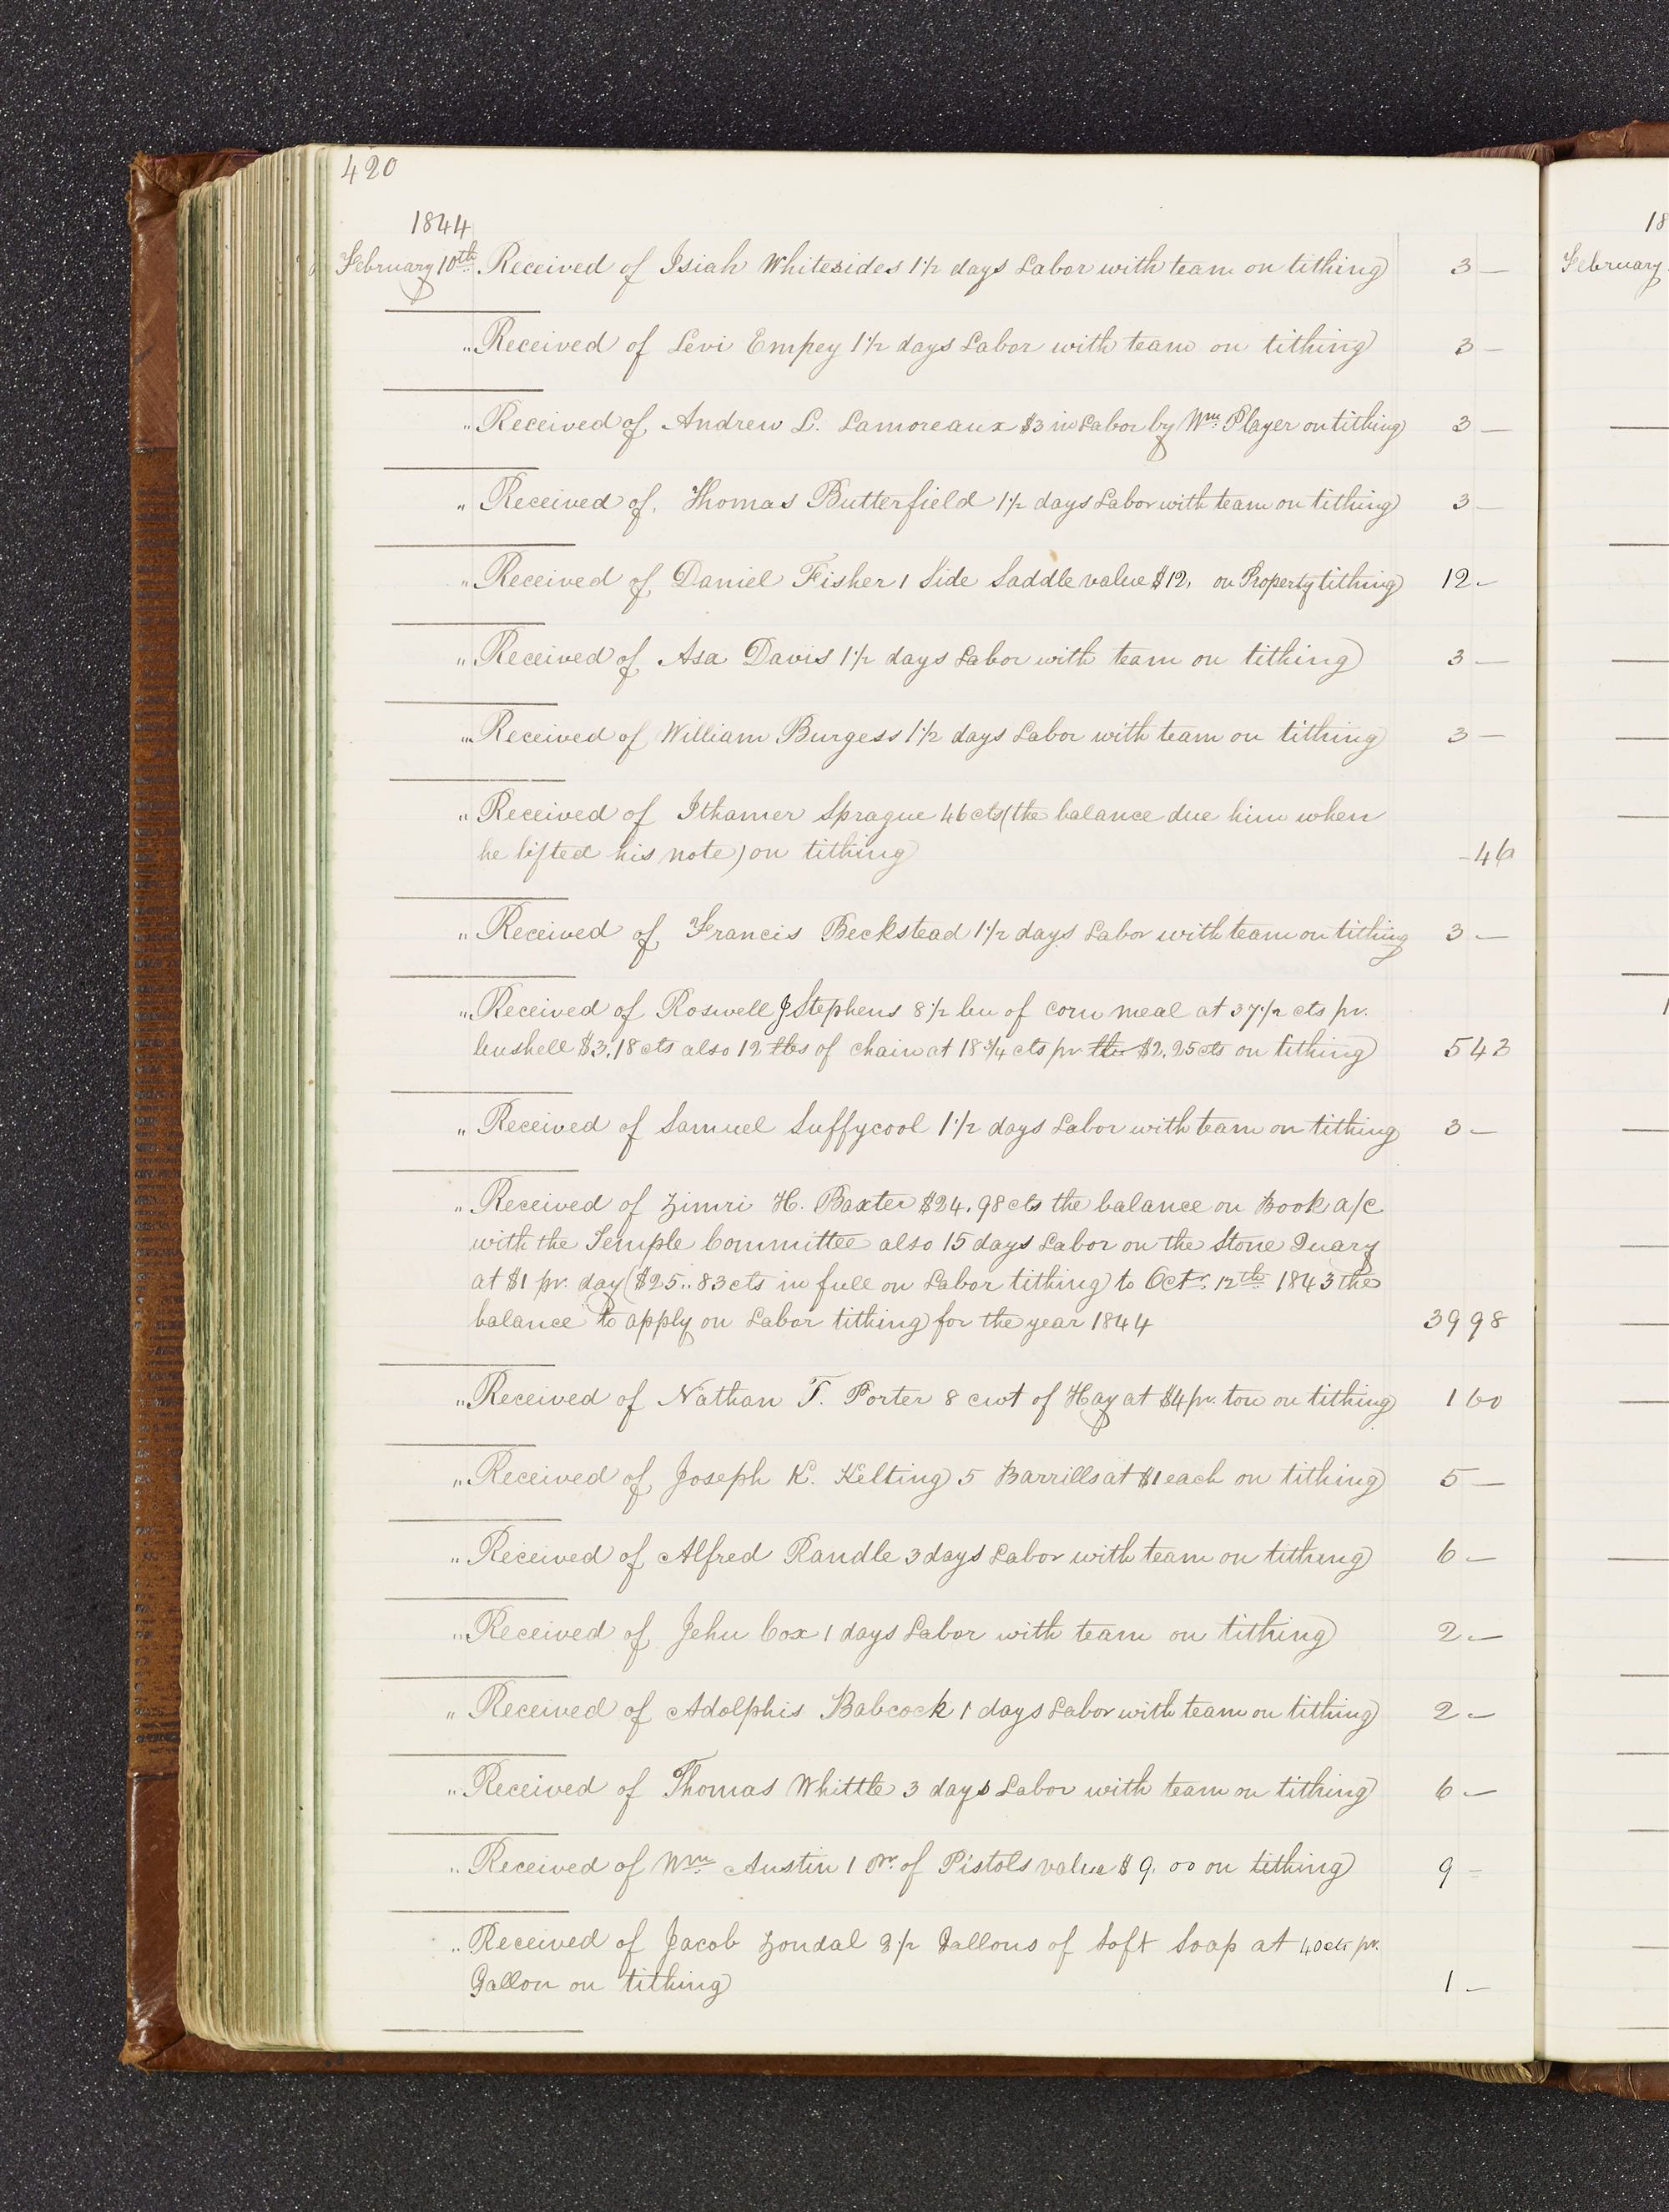 420
1844
February 10th Received of Isiah Whitesides 1 1/2 days Labor with team on tithing 3 —
" Received of Levi Empey 1 1/2 days Labor with team on tithing 3 —
" Received of Andrew L. Lamoreaux $3 in Labor by Wm. Player on tithing 3 —
" Received of, Thomas Butterfield 1 1/2 days Labor with team on tithing 3 —
" Received of Daniel Fisher 1 Side Saddle value $12, on Property tithing 12 —
" Received of Asa Davis 1 1/2 days Labor with team on tithing 3 —
" Received of William Burgess 1 1/2 days Labor with team on tithing 3 —
" Received of Ithamer Sprague 46 cts (the balance due him when
he lifted his note) on tithing – 46
" Received of Francis Beckstead 1 1/2 days Labor with team on tithing 3 —
" Received of Roswell J Stephens 8 1/2 bu of corn meal at 37 1/2 cts pr.
bushell $3.18 cts also 12 lbs of chain at 18 3/4 cts pr lb $2.25 cts on tithing 5 43
" Received of Samuel Suffycool 1 1/2 days Labor with team on tithing 3 —
" Received of Zimri H. Baxter $24.98 cts the balance on Book a/c
with the Temple Committee also 15 days Labor on the Stone Quary
at $1 pr. day ($25..83 cts in full on Labor tithing to Octr. 12th 1843 the
balance to apply on Labor tithing for the year 1844 39 98
" Received of Nathan T. Porter 8 cwt of Hay at $4 pr. ton on tithing 1 60
" Received of Joseph K. Kelting 5 Barrills at $1 each on tithing 5 —
" Received of Alfred Randle 3 days Labor with team on tithing 6 —
" Received of Jehu Cox 1 days Labor with team on tithing 2 —
" Received of Adolphis Babcock 1 days Labor with team on tithing 2 —
" Received of Thomas Whittle 3 days Labor with team on tithing 6 —
" Received of Wm. Austin 1 Pr. of Pistols value $9.00 on tithing 9 –
" Received of Jacob Zondal 2 1/2 Gallons of Soft Soap at 40 cts pr.
Gallon on tithing 1 —
18
February